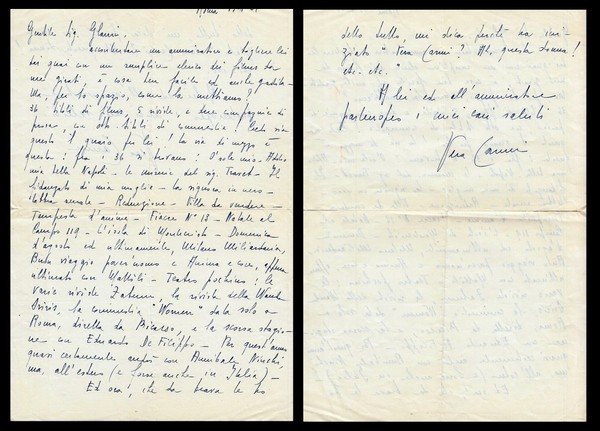 Gentile Sig.
accontentare un ammiratore e togliere lei
dai guai con un semplice elenco dei films da
me girati è cosa ben facile ed anche gradita -
Ma per lo spazio, come la mettiamo?
36 titoli di films, 5 riviste, e dieci compagnie di
prosa, con otto titoli di commedia! Credo sia
questo il guaio per lei! La via di mezzo è
questa: fra i 36 si trovano: O sole mio - Addio
mia bella Napoli - le miserie del sig. Travet - Il
fidanzato di mia moglie - la signora in nero -
l'abito nuziale - Redenzione - Villa da vendere -
Tempesta d'anime - Fiacre N° 13 - Natale al
Campo 119 - L'isola di Montecristo - Domenica
d'agosto ed ultimamente, Milano Miliardaria,
Buon viaggio pover'uomo e Anema e core, appena
ultimato con Mattoli - Teatro pochino: le
varie riviste Za-bum, la rivista della Wanda
Osiris, la commedia "Women" data solo a
Roma, diretta da e la scorsa stagio-
ne con Eduardo De Filippo - Per quest'anno
quasi certamente sarò con Annibale Ninchi,
ma, all'estero (e forse anche in Italia) -
Ed ora, che da brava le ho
detto tutto, mi dica perché ha
ziato "Vera Carmi? Ah, questa donna!
etc. etc."
A lei ed all'ammiratore
partenopeo i miei cari saluti
Vera Carmi